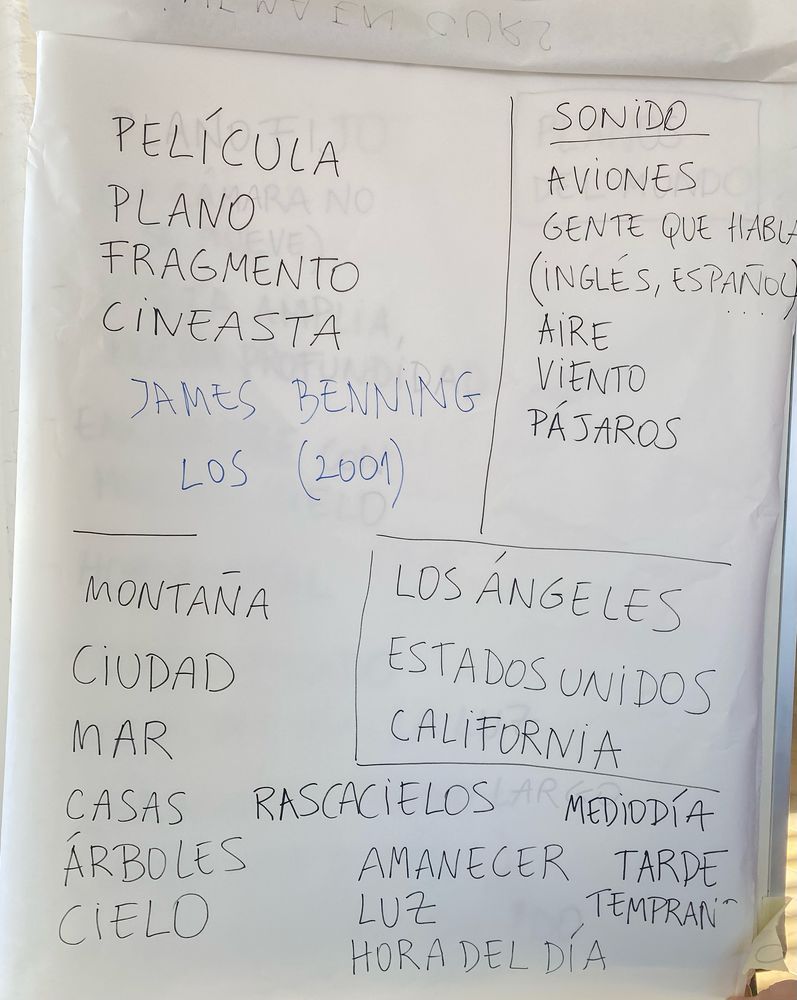 PELÍCULA
PLANO
FRAGMENTO
CINEASTA
JAMES BENNING
LOS (2001)
SONIDO
AVIONES
GENTE QUE HABLA
(INGLÉS, ESPAÑOL)
....
AIRE
VIENTO
PÁJAROS
MONTAÑA
CIUDAD
MAR
CASAS
ÁRBOLES
CIELO
LOS ÁNGELES
ESTADOS UNIDOS
CALIFORNIA
RASCACIELOS MEDIODÍA
AMANECER TARDE
LUZ
HORA DEL DÍA